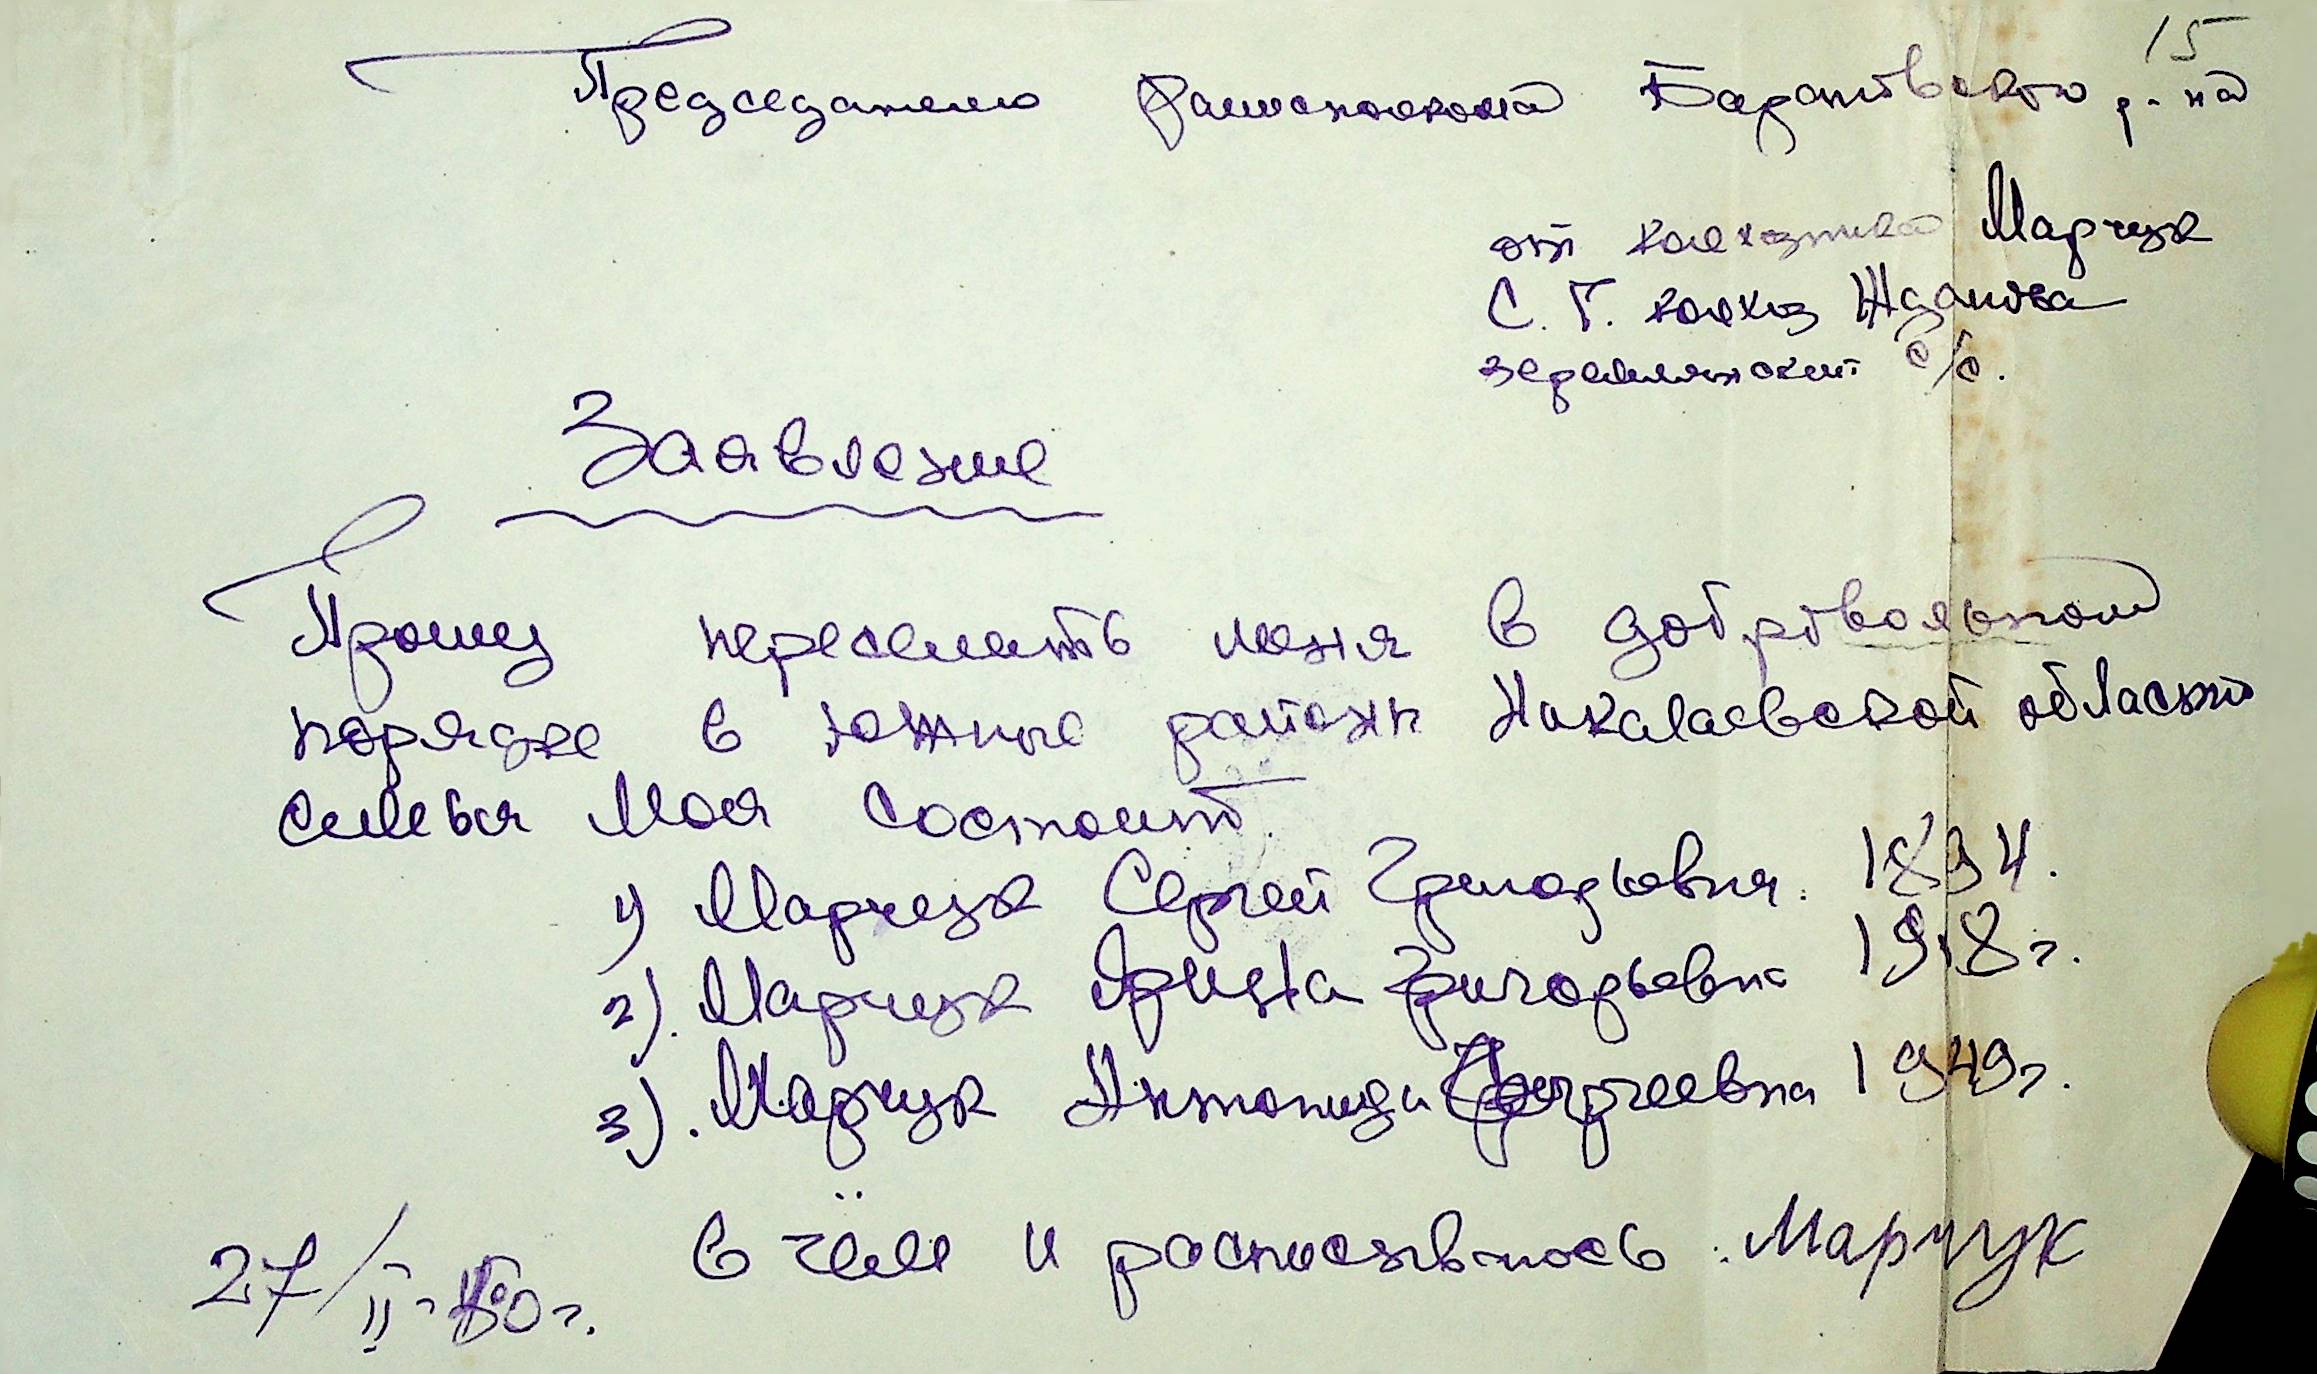 15
Председателю Райисполкома Барановского р-на
от колхозника Марчук
С. Г. колхоз Жданова
зеремлянский с/с.
Заявление
Прошу переселить меня в добровольном
порядке в южные районы Николаевской области
семья моя состоит.
1) Марчук Сергей Григорьевич. 1894.
2). Марчук Ярина Григорьевна 1918 г.
3). Марчук Антонида Сергеевна 1949 г.
в чём и расписываюсь: Марчук
27/II-50 г.